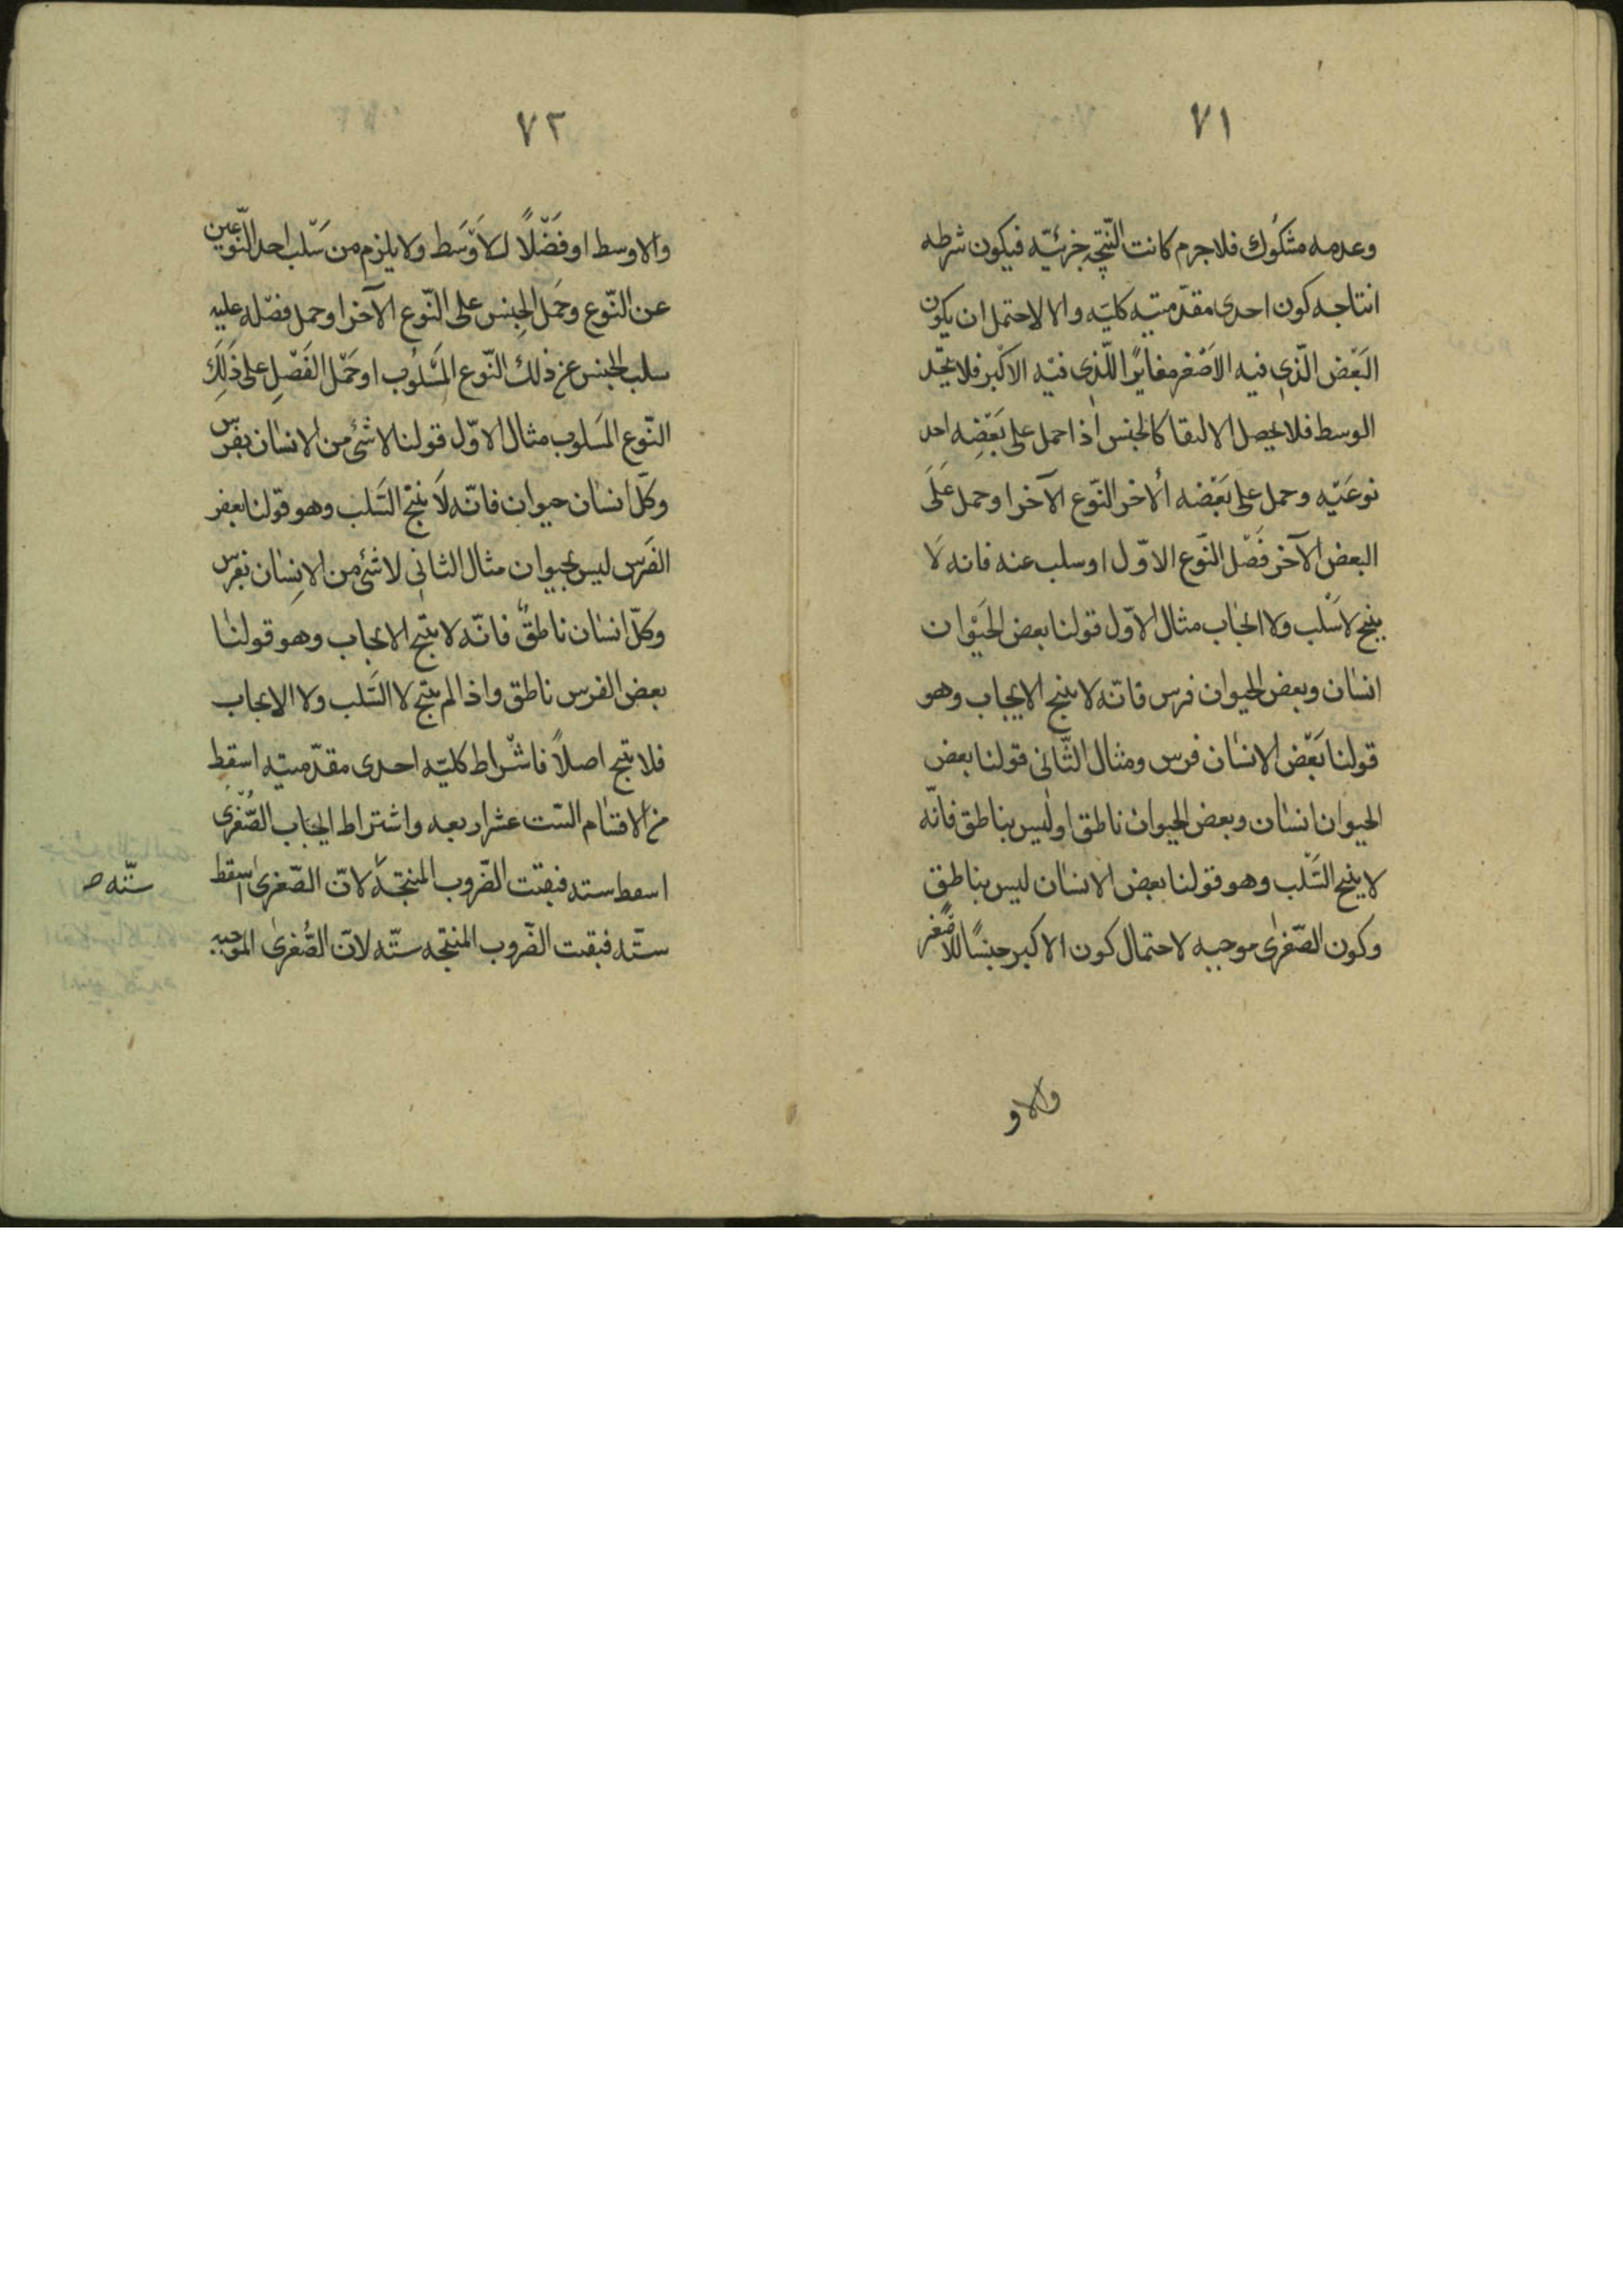 ٧١
وعدمه مشكوك فلاجرم كانت النتيجه جزئيّه فيكون شرطه
انتاجه كون احدى مقدّمتيه كليّه والا لاحتمل ان يكون
البَعْض الّذى فيه الاصْغر مغايرًا للّذى فيه الاكْبر فلا يتّحد
الوسط فلا يحصل الالتقا كالجنس اذا حمل على بَعْضِه احد
نوعَيْه وحمل على بَعْضه الاخر النّوع الآخر او حمل عَلَى
البعض الآخر فَصْل النّوع الاوّل او سلب عنه فانه لَا
ينتج لا سَلْب ولا ايجاب مثال الاوّل قولنا بعض الحَيْوان
انسان وبعض الحيوان فرس فانّه لا ينتج الايجاب وهو
قولنا بَعْض الانسان فرس ومثال الثّانى قولنا بعض
الحيوان انسان وبعض الحيوان ناطق او ليس بناطق فانّه
لا ينتج السَّلب وهو قولنا بعض الانسان ليس بناطق
وكون الصّغرى موجبه لاحتمال كون الاكبر جنسًا للاصْغر
والاو
٧٢
والاوسط او فَصْلًا للاَوْسَط ولا يلزم من سَلْب احد النّوعين
عن النّوع وحَمل الجِنس على النّوع الآخر او حمل فصْله عليه
سلب الجنس عن ذلك النّوع المَسْلُوب او حَمْل الفَصْلِ على ذَلِكَ
النّوع المَسلوب مثال الاوّل قولنا لا شئ من الانسان بفرس
وكلّ انسان حيوان فانّه لَا ينتج السَّلب وهو قوْلنا بعض
الفَرَس ليس بحيوان مثال الثانى لا شئ من الاِنسان بفرس
وكلّ انسان ناطقٌ فانّه لا ينتج الايجاب وهو قولنا
بعض الفرس ناطق واذا لم ينتج لا السَّلب ولا الايجاب
فلا ينتج اصلاً فاشْراط كليّه احدى مقدّمتيه اسقط
من الاقسام الستت عشر اربعه واشتراط ايجاب الصُّغْرى
اسقط سته فبقيت الضّروب المنتجَه لانّ الصّغرى اسقط
ستّه فبقيت الضّروب المنتجه ستّه لانّ الصُّغرى الموجبه
ستّه صـ